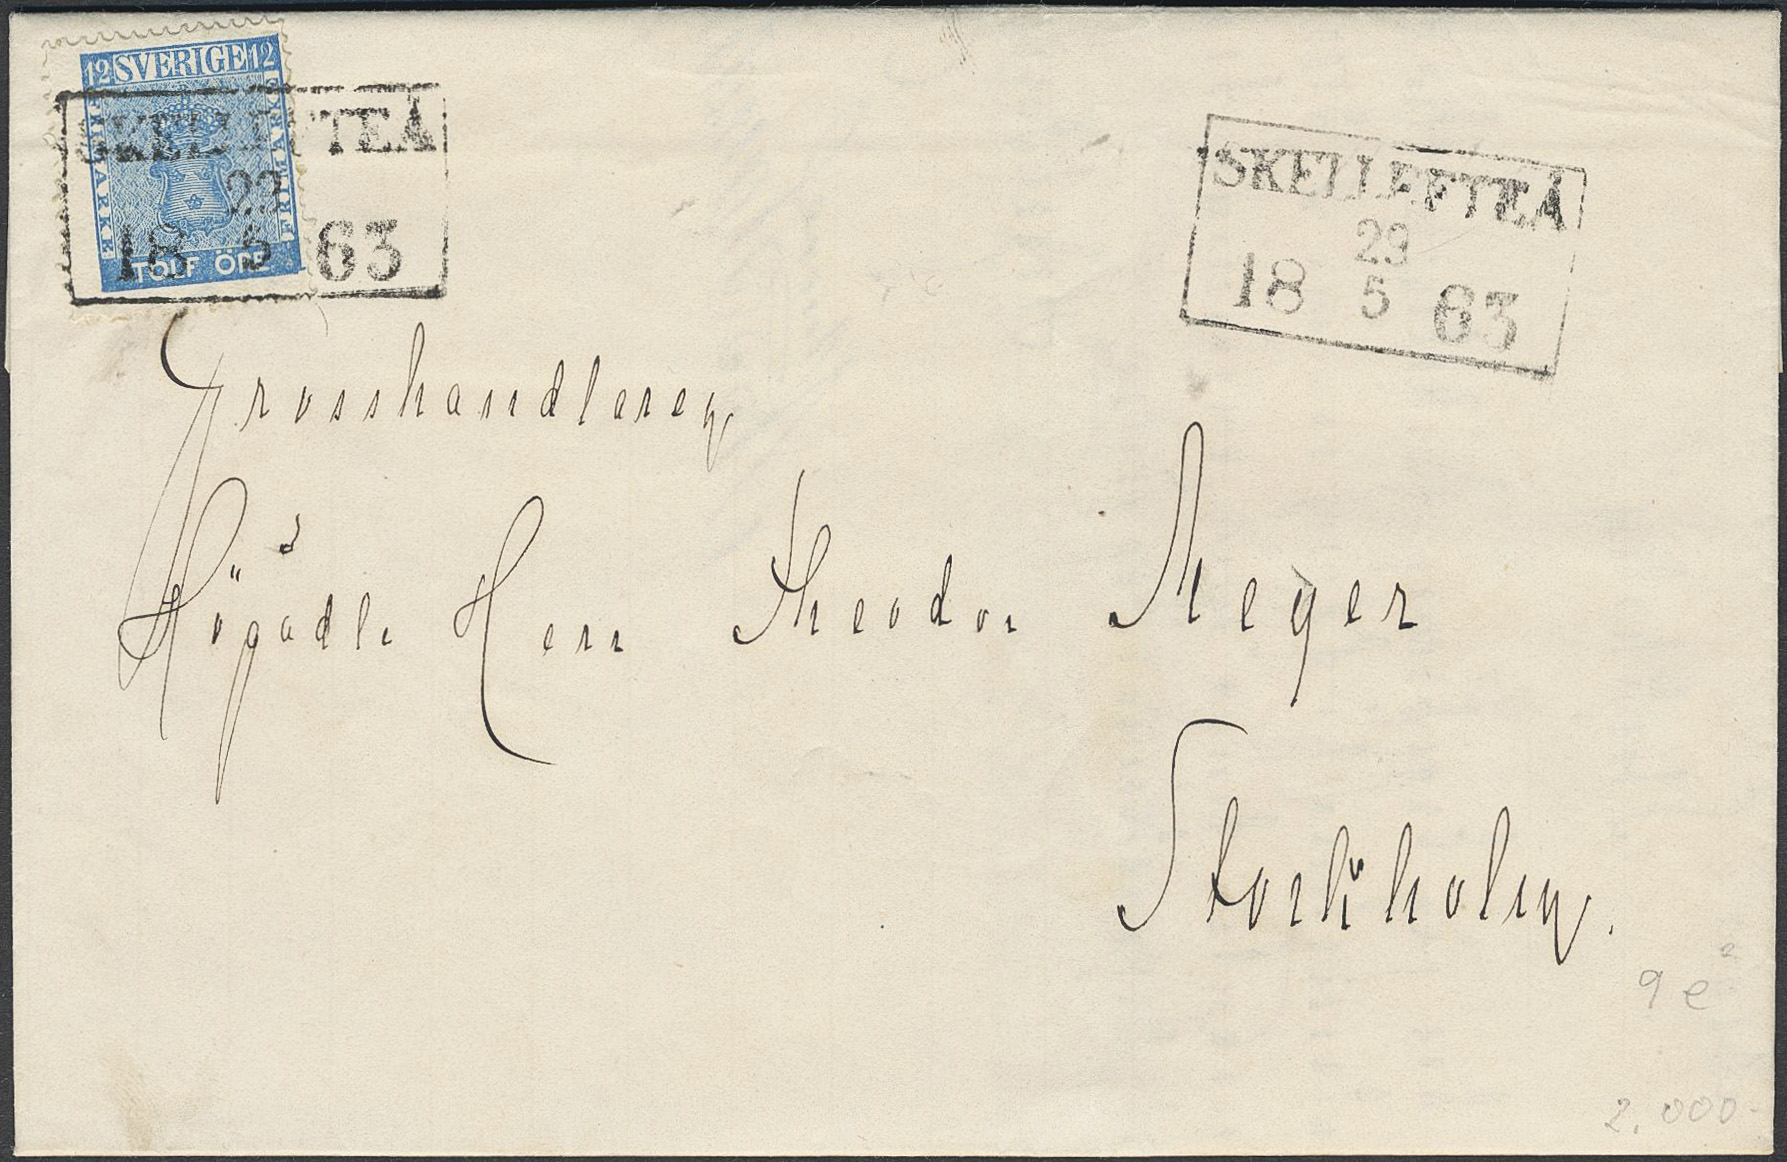 12 SVERIGE 12
FRIMÄRKE
FRIMARKE
TOLF ÖRE
SKELLEFTEÅ
29
18 5 63
SKELLEFTEÅ
29
18 5 63
Grosshandleren
Högädle Herr Theodor Meyer
Stockholm.
9 e 2
2.000-